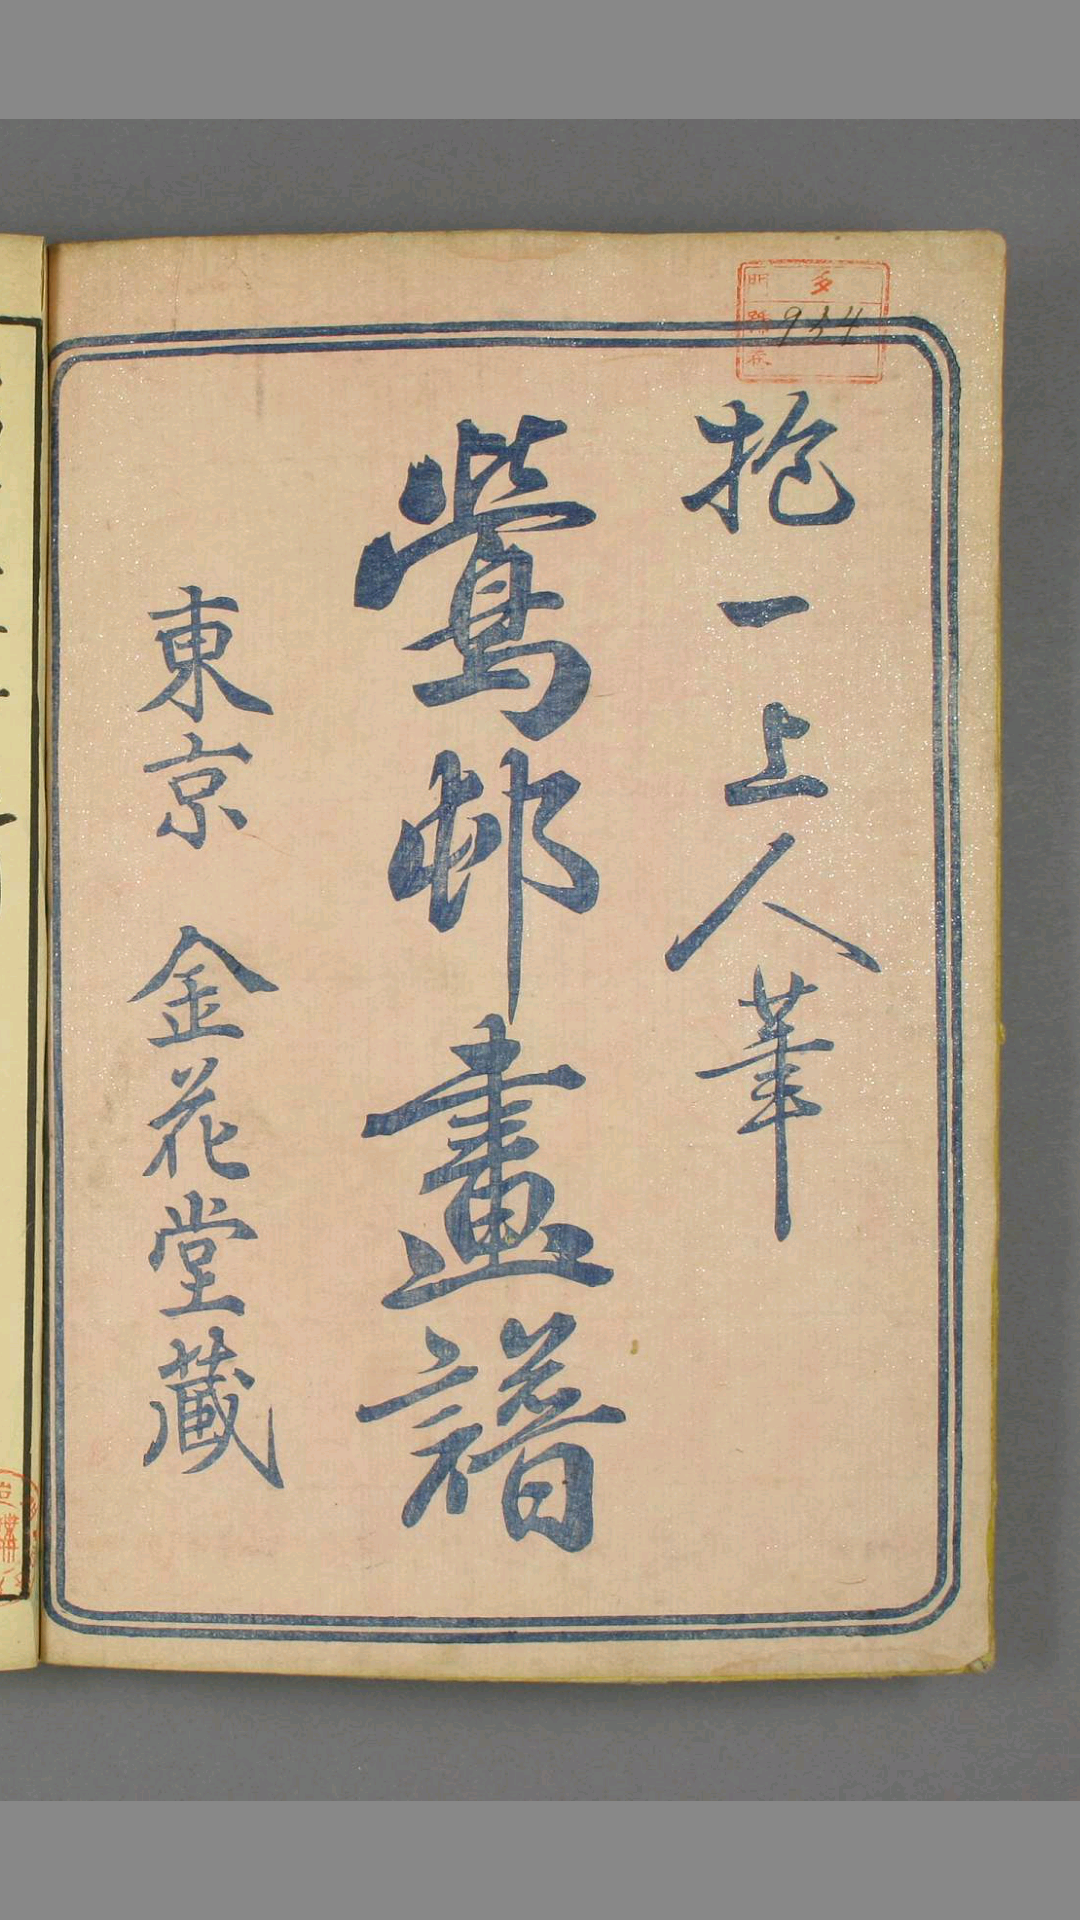 抱一上人筆
鶯邨畫譜
東京 金花堂藏
多
934